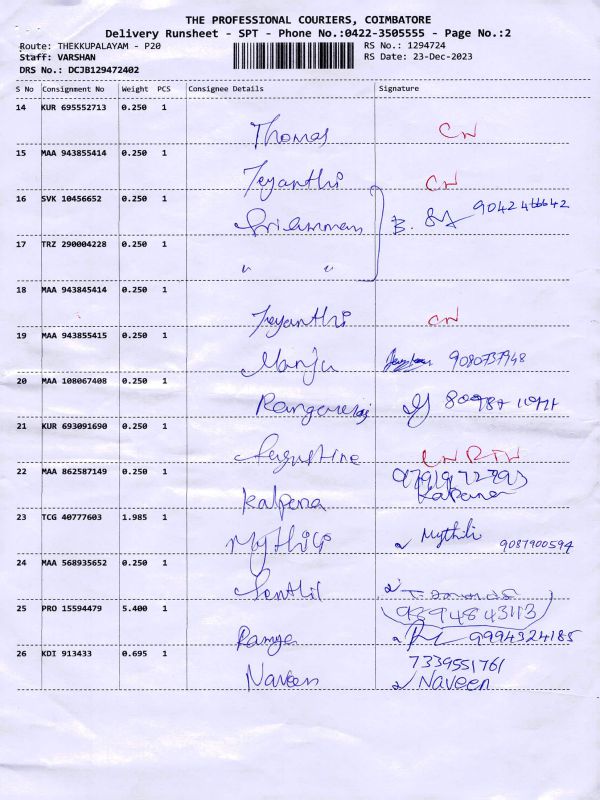 THE PROFESSIONAL COURIERS, COIMBATORE
Delivery Runsheet - SPT - Phone No.:0422-3505555 - Page No.:2
Route: THEKKUPALAYAM - P20
RS No.: 1294724
Staff: VARSHAN
RS Date: 23-Dec-2023
DRS No.: DCJB129472402
S No Consignment No Weight PCS Consignee Details Signature
14 KUR 695552713 0.250 1
Thomas CN
15 MAA 943855414 0.250 1
Jeyanthi CN
16 SVK 10456652 0.250 1
Sri Amman B.
17 TRZ 290004228 0.250 1
" "
18 MAA 943845414 0.250 1
Jeyanthi CN
19 MAA 943855415 0.250 1
Manju 9080737948
20 MAA 108067408 0.250 1
21 KUR 693091690 0.250 1
Augustine CN RTN
22 MAA 862587149 0.250 1
Kalpana
23 TCG 40777603 1.985 1
Mythili Mythili 9087900594
24 MAA 568935652 0.250 1
Senthil
25 PRO 15594479 5.400 1
9894843113
Ramya 9994324185
26 KDI 913433 0.695 1
7339551761
Naveen Naveen